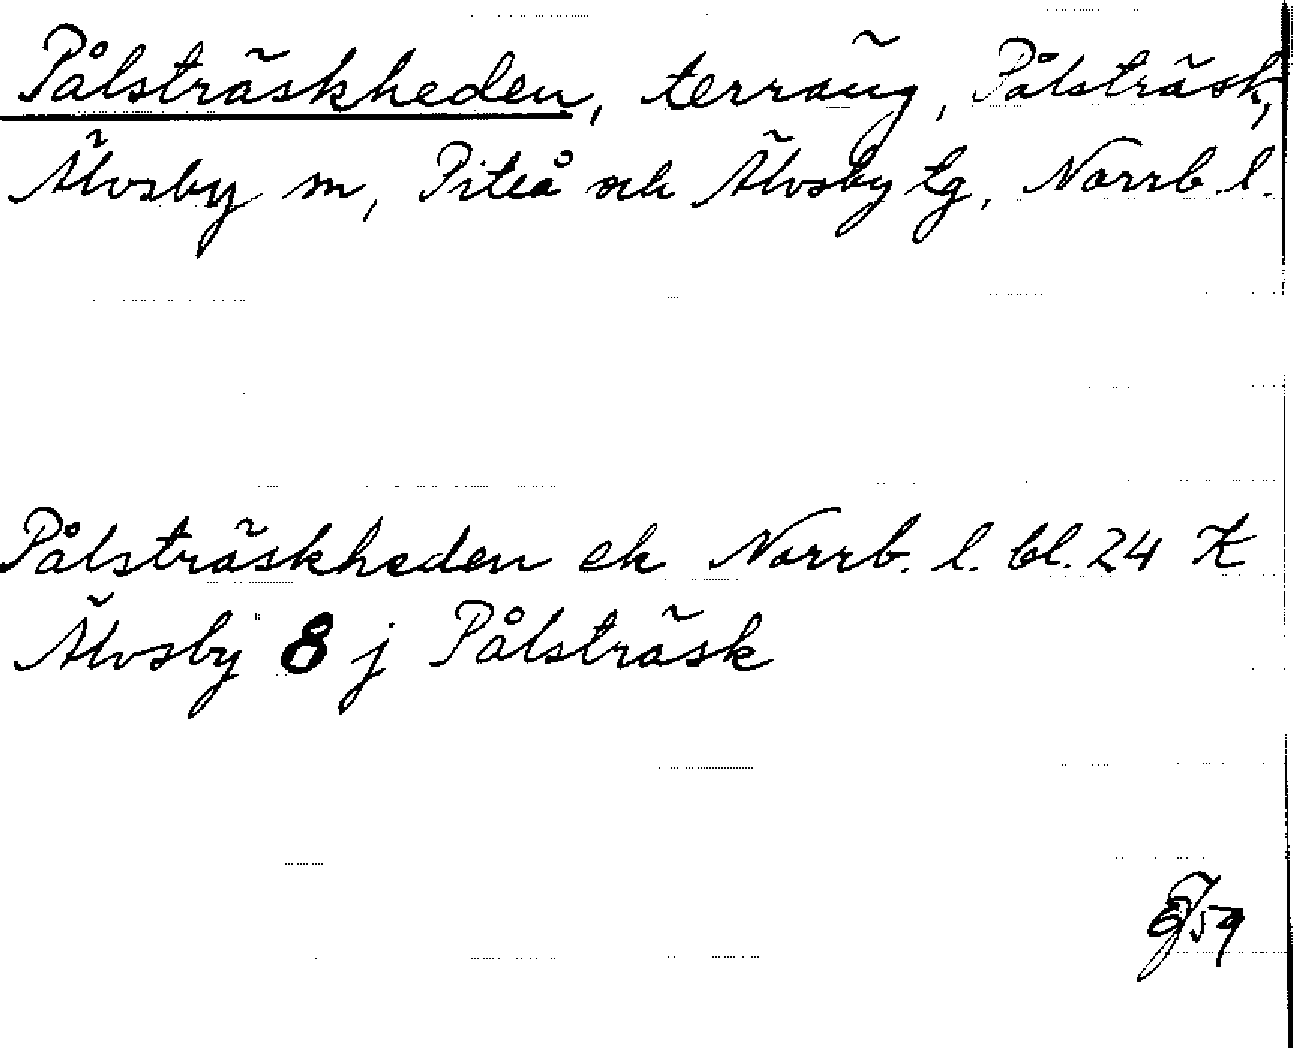 Pålsträskheden, terräng, Pålsträsk,
Älvsby m, Piteå och Älvsby tg, Norrb. l.
Pålsträskheden ek Norrb. l. bl. 24 K
Älvsby 8 j Pålsträsk
59